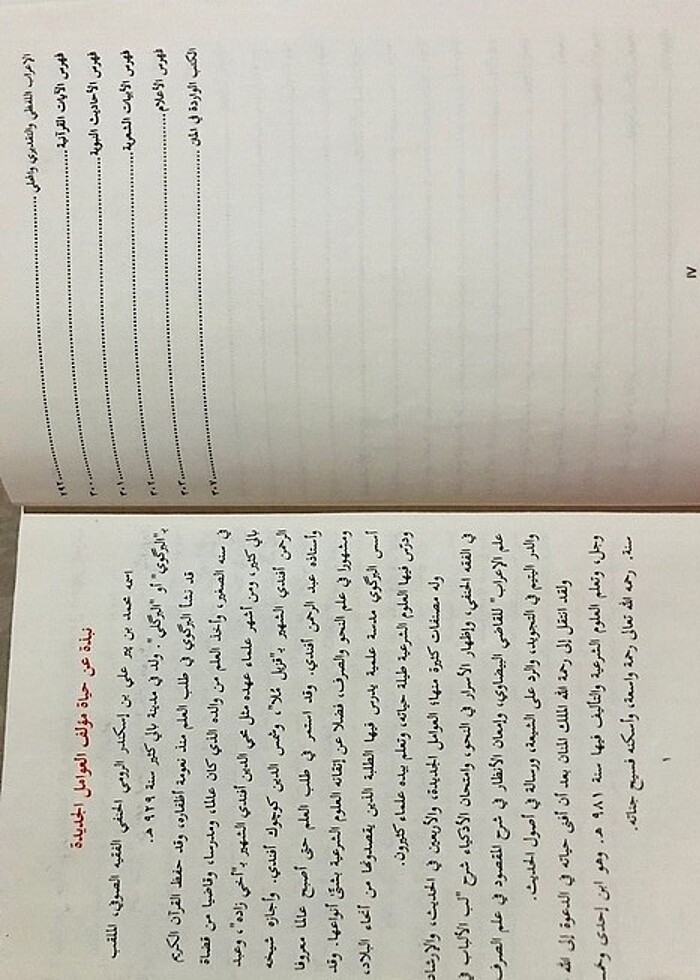 الإعراب اللفظي والتقديري والمحلي ٢٩٢
فهرس الآيات القرآنية ٣٠٠
فهرس الأحاديث النبوية ٣٠١
فهرس الأبيات الشعرية ٣٠٢
فهرس الأعلام ٣٠٣
الكتب الواردة في المتن ٣٠٧
IV
نبذة عن حياة مؤلف العوامل الجديدة
اسمه محمد بن بير علي بن إسكندر الرومي الحنفي الفقيه الصوفي، الملقب
بـ"البركوي" أو "البركلي". ولد في مدينة بالي كثير سنة ٩٢٩ هـ.
قد نشأ البركوي في طلب العلم منذ نعومة أظفاره، وقد حفظ القرآن الكريم
في سنه الصغير، وأخذ العلم من والده الذي كان عالما، ومدرسا، وقاضيا من قضاة
بالي كثير، ومن أشهر علماء عهده مثل محي الدين أفندي الشهير بـ"أخي زاده"، وعبد
الرحمن أفندي الشهير بـ"قزيل مُلا"، وشمس الدين كوچوك أفندي. وأجازه شيخه
وأستاذه عبد الرحمن أفندي. وقد استمر في طلب العلم حتى أصبح عالما معروفا
ومشهورا في علم النحو والصرف، فضلا عن إتقانه العلوم الشرعية بشتى أنواعها. وقد
أسس البركوي مدرسة علمية يدرس فيها الطلبة الذين يقصدونها من أنحاء البلاد،
ودرّس فيها العلوم الشرعية طيلة حياته، وتعلم بيده علماء كثيرون.
وله مصنفات كثيرة منها؛ العوامل الجديدة، والأربعين في الحديث، والإرشاد
في الفقه الحنفي، وإظهار الأسرار في النحو، وامتحان الأذكياء شرح "لب الألباب في
علم الإعراب" للقاضي البيضاوي، وإمعان الأنظار في شرح المقصود في علم الصرف
والدر اليتيم في التجويد، والرد على الشيعة، ورسالة في أصول الحديث.
ولقد انتقل إلى رحمة الله الملك المنان بعد أن أفنى حياته في الدعوة إلى الله
وجل، وتعلم العلوم الشرعية والتأليف فيها سنة ٩٨١ هـ. وهو ابن إحدى
سنة. رحمه الله تعالى رحمة واسعة، وأسكنه فسيح جناته.
١